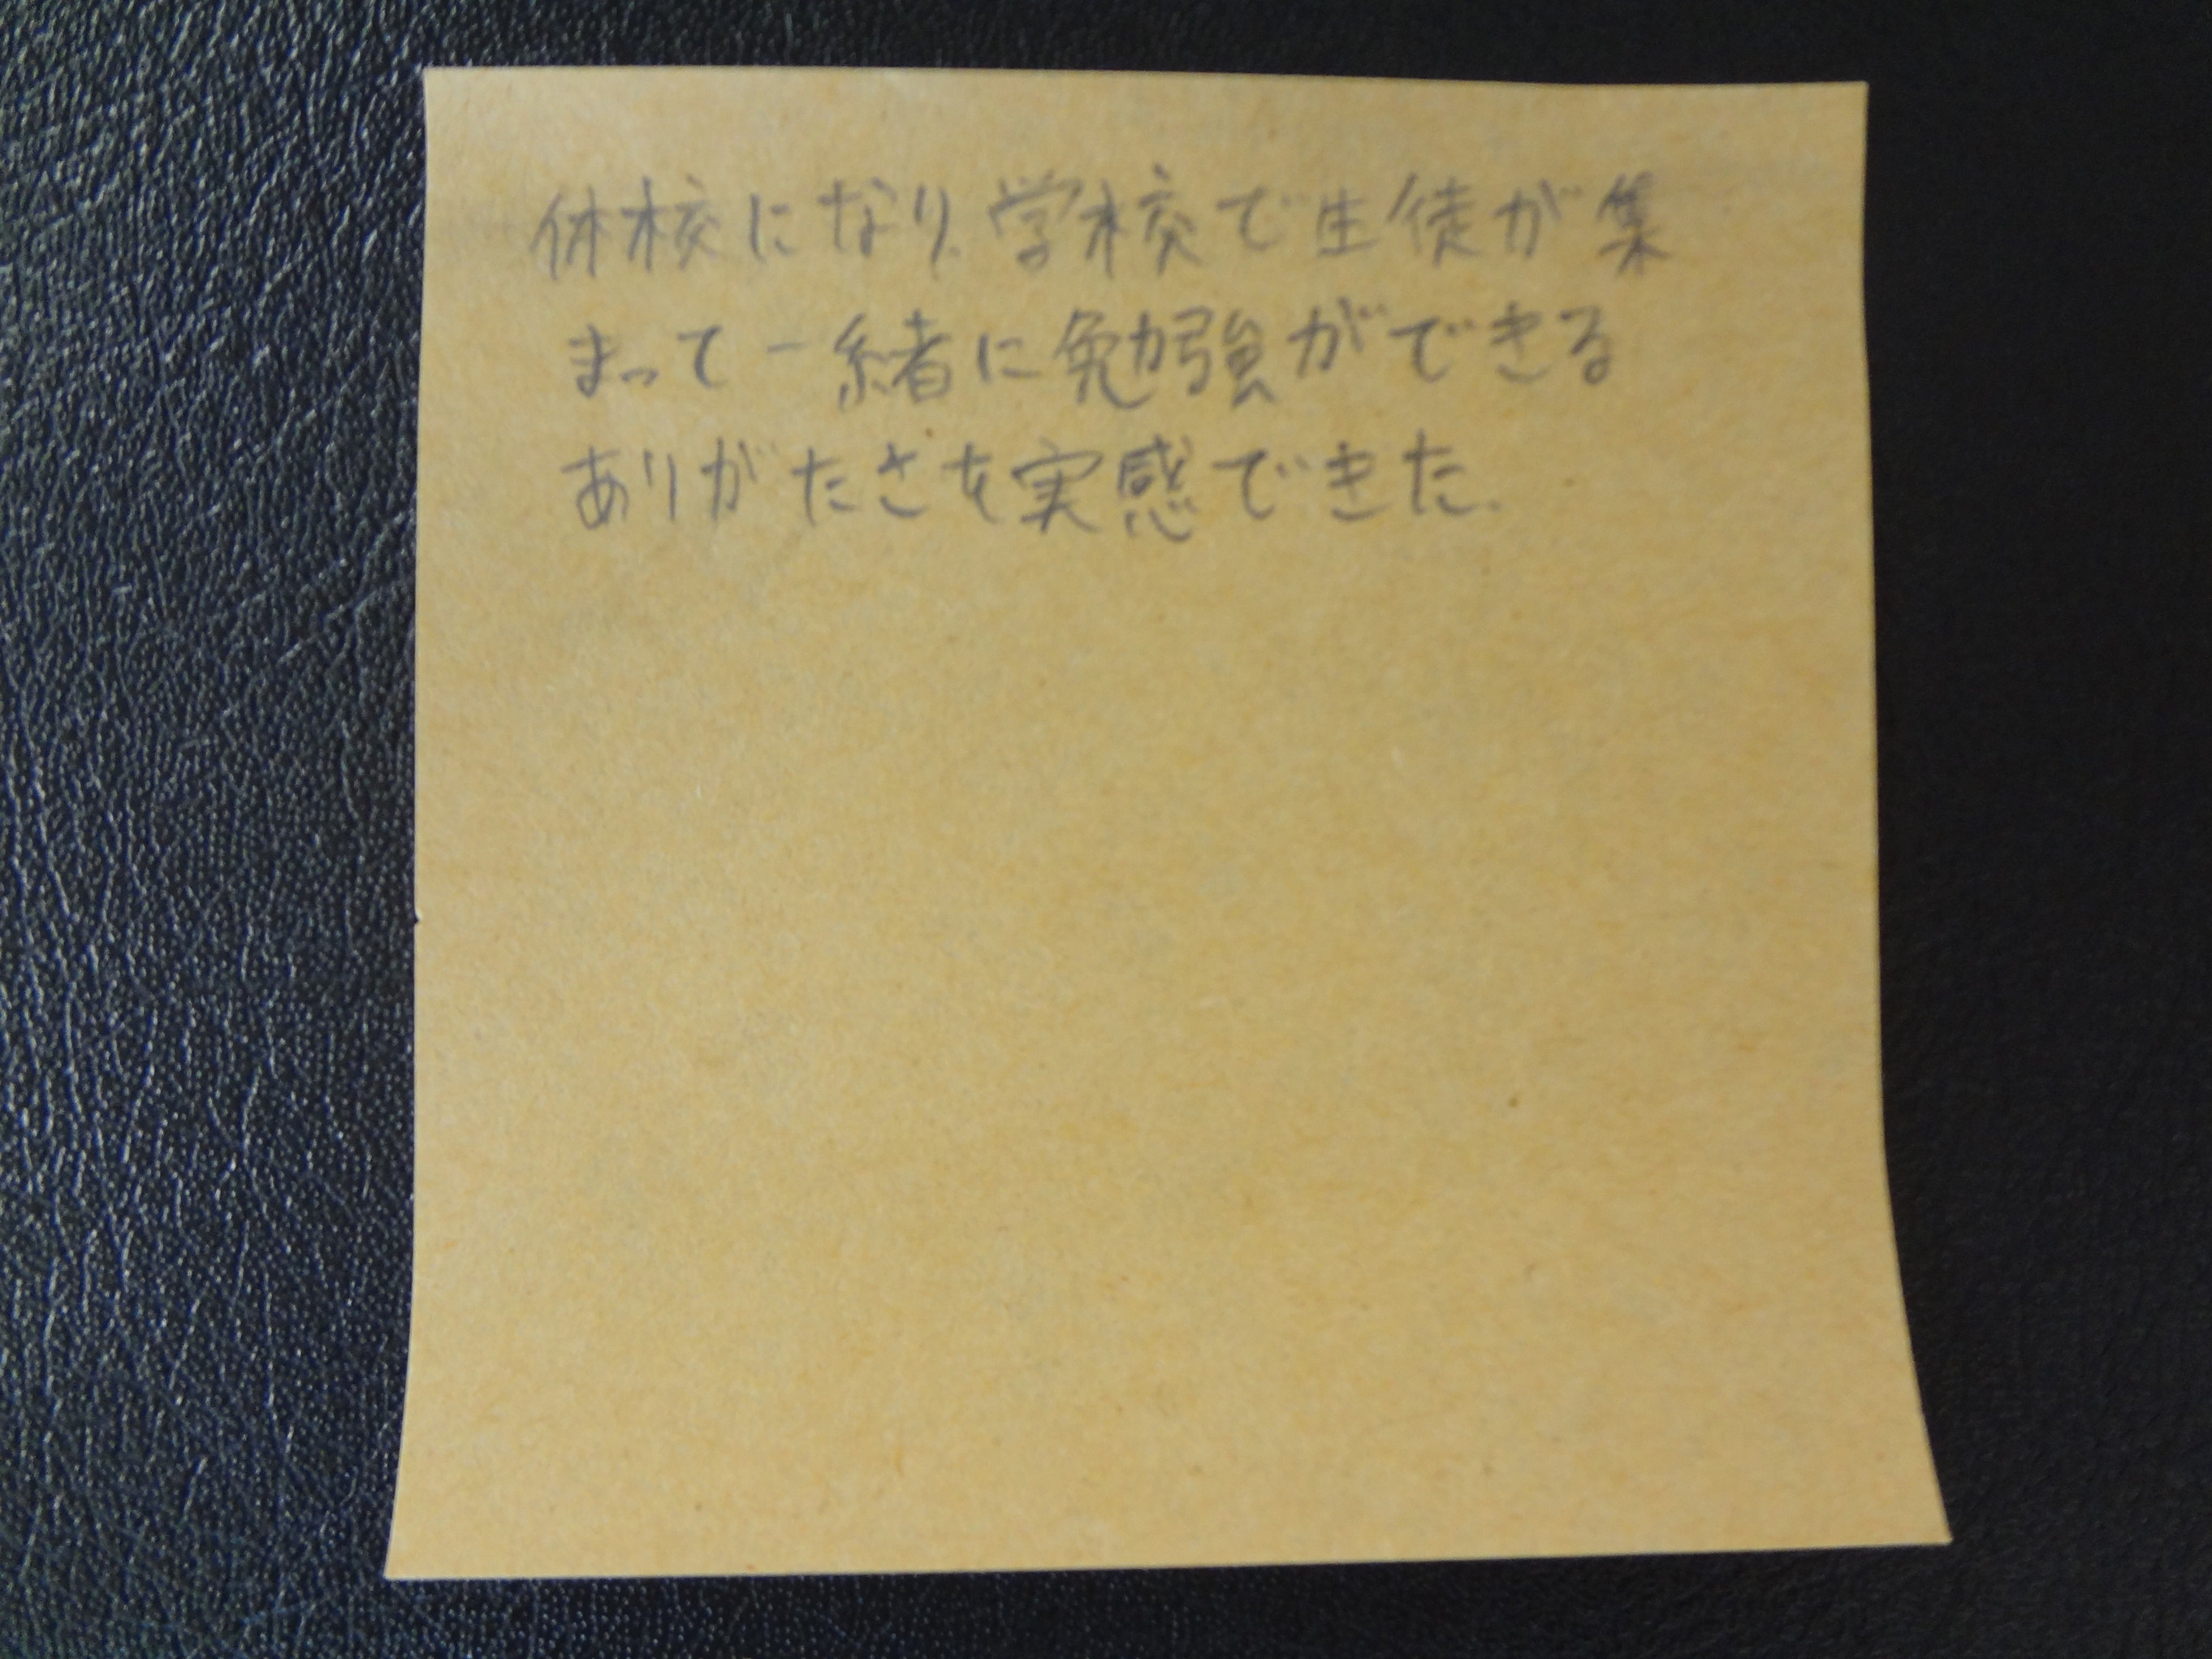 休校になり、学校で生徒が集
まって一緒に勉強ができる
ありがたさを実感できた.